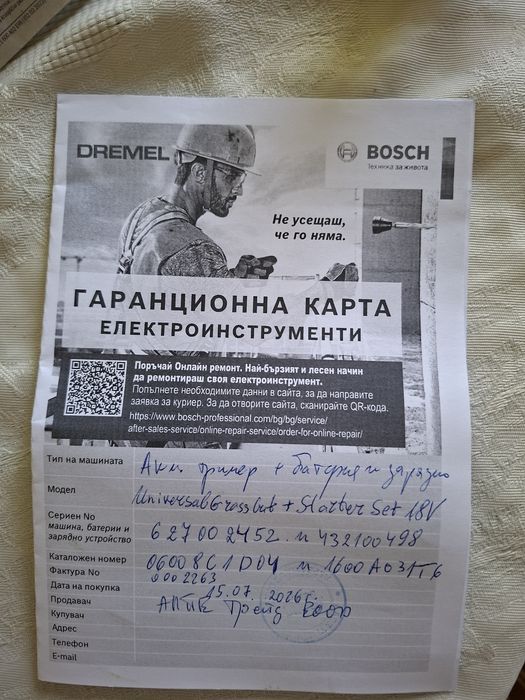 DREMEL
BOSCH
Техника за живота
Не усещаш,
че го няма.
ГАРАНЦИОННА КАРТА
ЕЛЕКТРОИНСТРУМЕНТИ
Поръчай Онлайн ремонт. Най-бързият и лесен начин
да ремонтираш своя електроинструмент.
Попълнете необходимите данни в сайта, за да направите
заявка за куриер. За да отворите сайта, сканирайте QR-кода.
https://www.bosch-professional.com/bg/bg/service/
after-sales-service/online-repair-service/order-for-online-repair/
Тип на машината Акк. тример + батерия и зарядно
Модел UniversalGrassCut + Starter Set 18V
Сериен No
машина, батерии и
зарядно устройство 627002452 и 432100498
Каталожен номер 06008C1D04 и 1600A03
Фактура No 0002263
Дата на покупка 15.07.2026г.
Продавач Трейд ЕООД
Купувач
Адрес
Телефон
E-mail